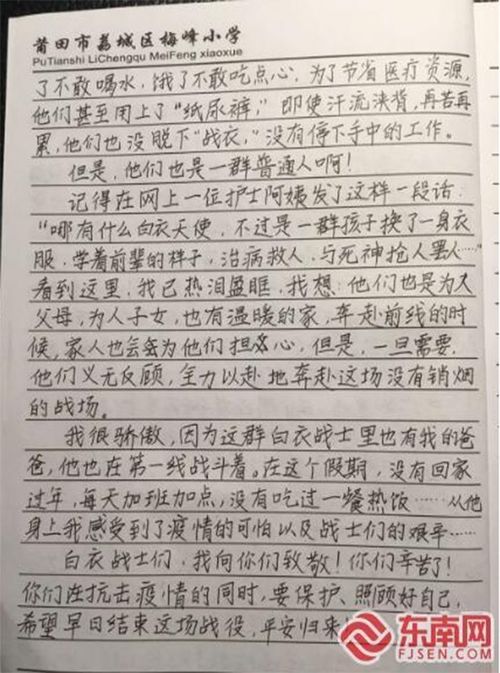 莆田市荔城区梅峰小学
PuTianshi LiChengqu MeiFeng xiaoxue
了不敢喝水，饿了不敢吃点心，为了节省医疗资源，
他们甚至用上了“纸尿裤，”即使汗流浃背，再苦再
累，他们也没脱下“战衣，”没有停下手中的工作。
但是，他们也是一群普通人啊！
记得在网上一位护士阿姨发了这样一段话：
“哪有什么白衣天使，不过是一群孩子换了一身衣
服，学着前辈的样子，治病救人，与死神抢人罢……”
看到这里，我已热泪盈眶，我想：他们也是为人
父母，为人子女，也有温暖的家，奔赴前线的时
候，家人也会为他们担心，但是，一旦需要，
他们义无反顾，全力以赴地奔赴这场没有销烟
的战场。
我很骄傲，因为这群白衣战士里也有我的爸
爸，他也在第一线战斗着。在这个假期，没有回家
过年，每天加班加点，没有吃过一餐热饭……从他
身上我感受到了疫情的可怕以及战士们的艰辛……
白衣战士们，我向你们致敬！你们辛苦了！
你们在抗击疫情的同时，要保护、照顾好自己，
希望早日结束这场战役，平安归来！
东南网
FJSEN.COM